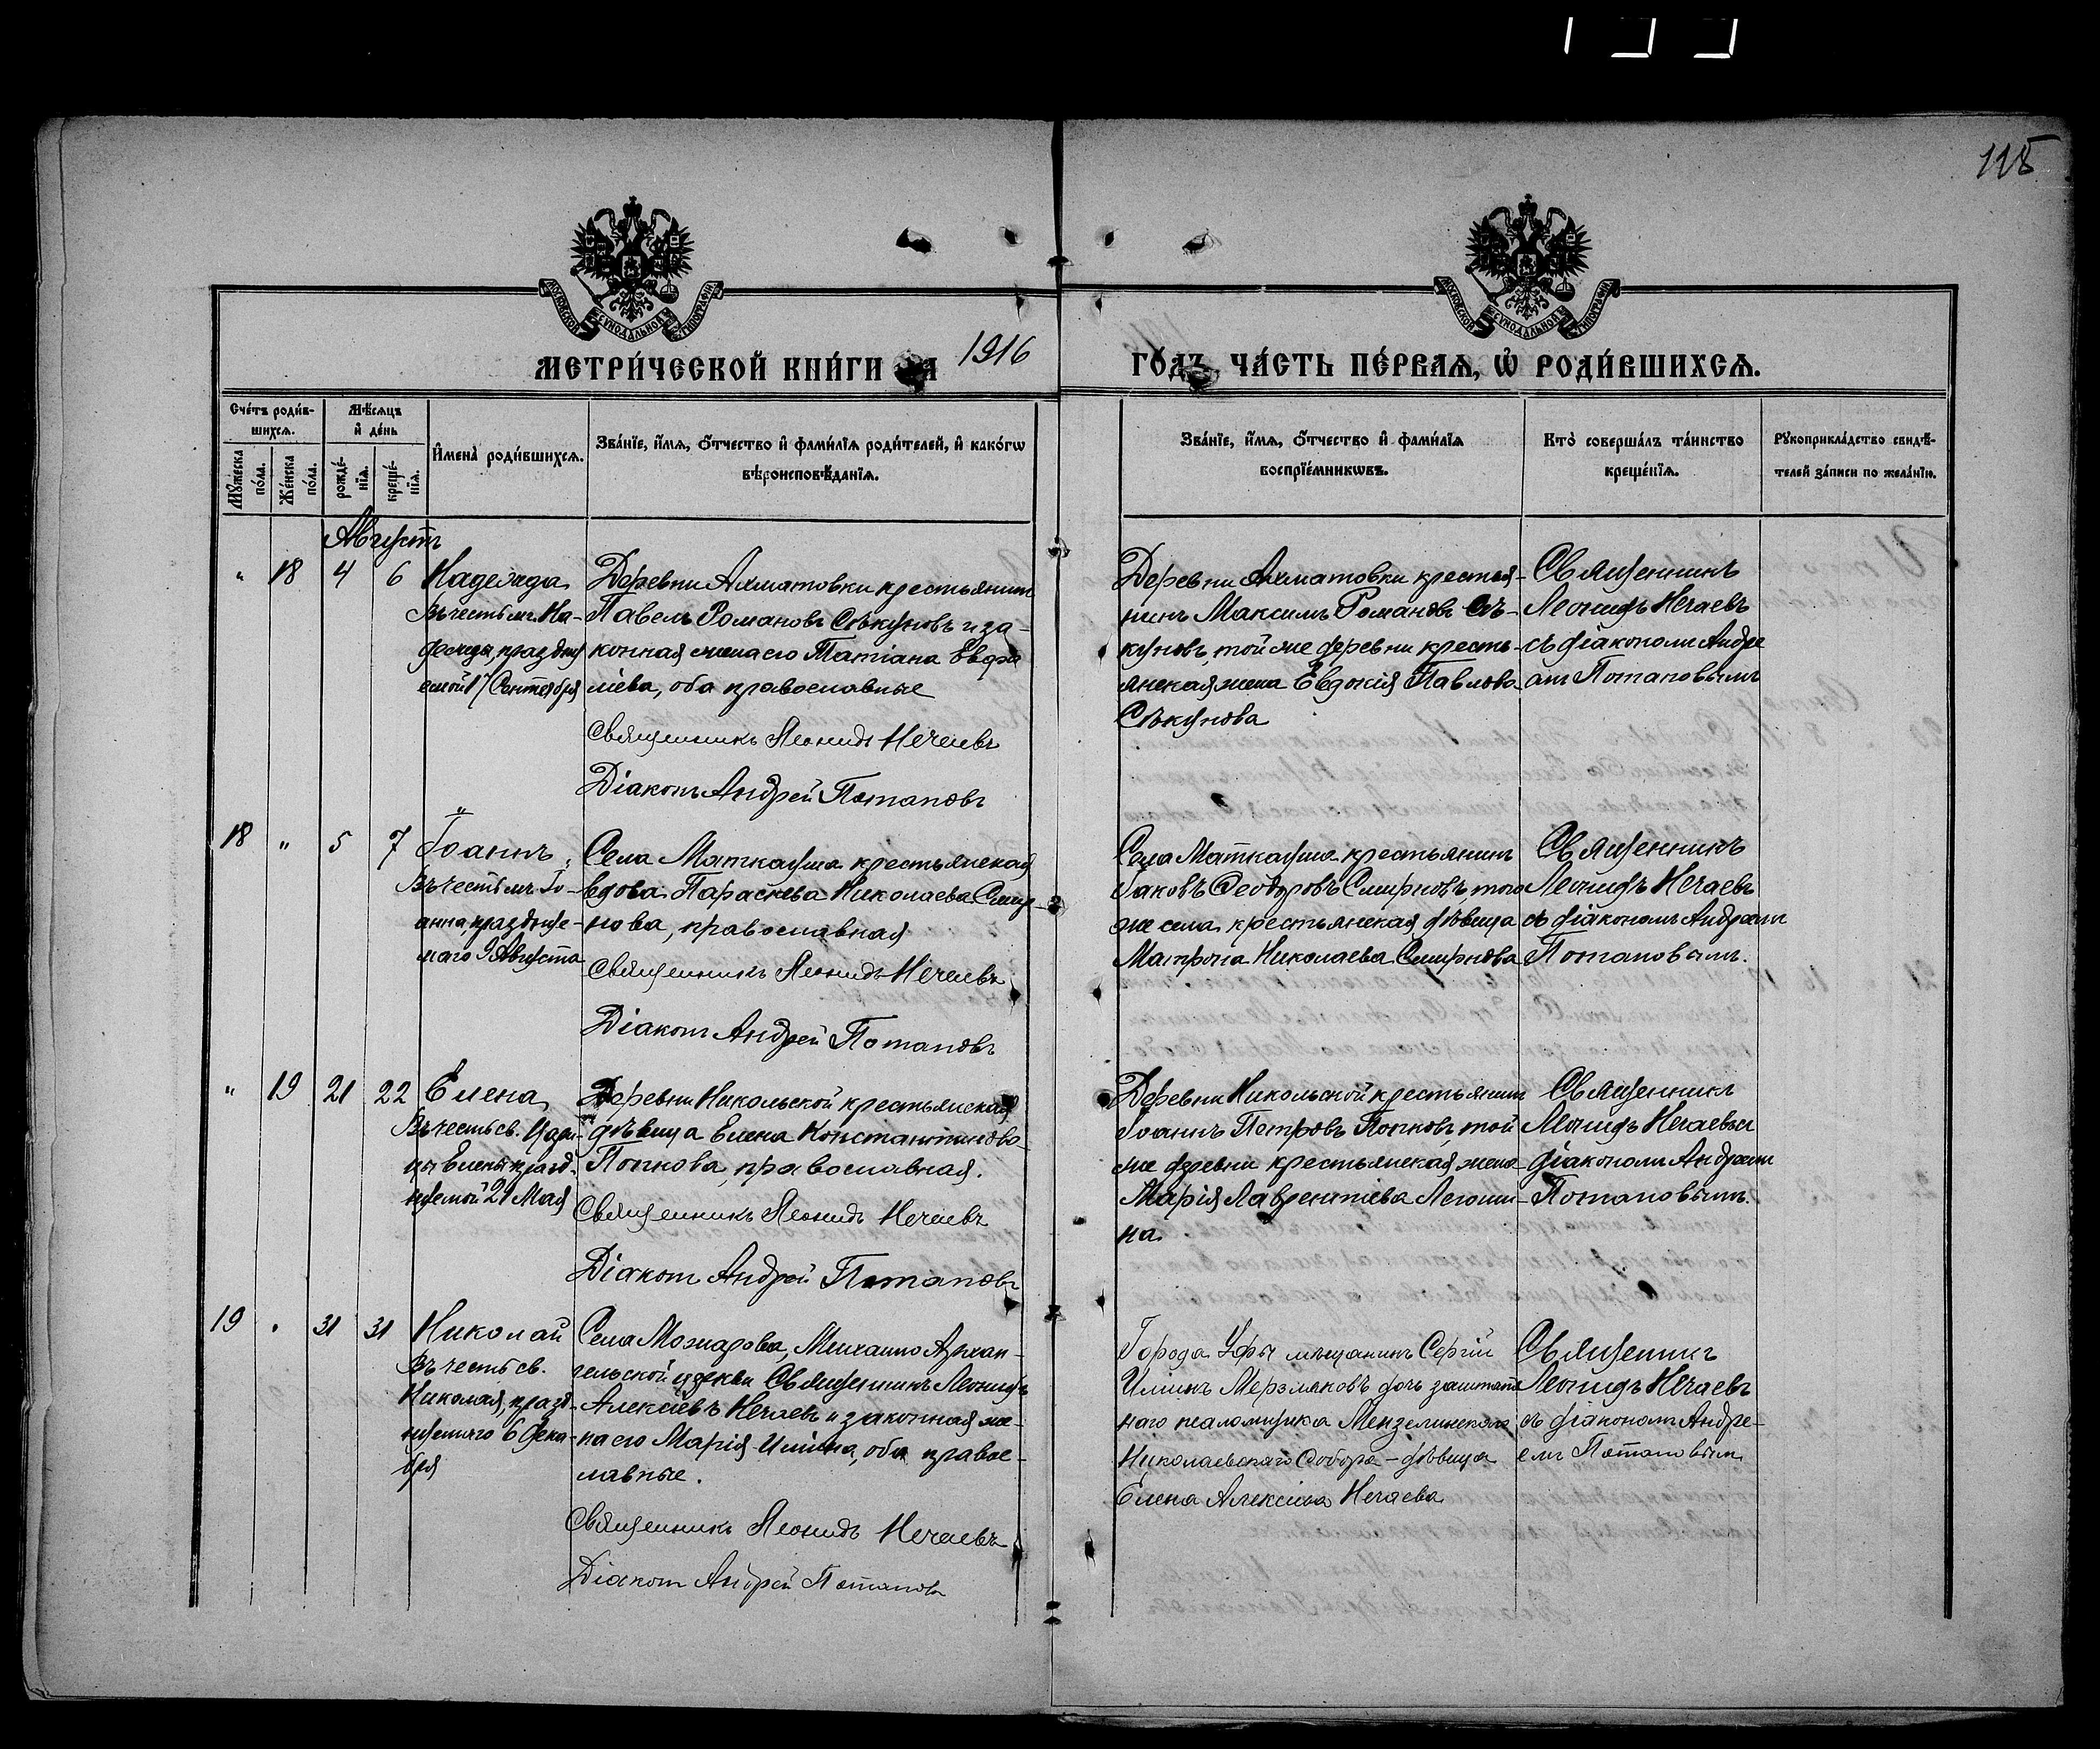 115
МОСКОВСКОЙ СѴНОДАЛЬНОЙ ТИПОГРАФІИ
МОСКОВСКОЙ СѴНОДАЛЬНОЙ ТИПОГРАФІИ
МЕТРИ́ЧЕСКОЙ КНИ́ГИ НА 1916
ГО́ДЪ, ЧА́СТЬ ПЕ́РВАѦ, Ѡ҆ РОДИ́ВШИХСѦ.
Сче́тъ роди́в-
шихсѧ.
Мѣ́сѧцъ
и҆ де́нь
Мꙋ́жеска
по́ла.
Же́нска
по́ла.
рожде́-
нїѧ.
креще́-
нїѧ.
И҆мена̀ роди́вшихсѧ.
Зва́нїе, и҆́мѧ, ѻ҆́тчество и҆ фами́лїѧ роди́телей, и҆ како́гѡ
вѣроисповѣ́данїѧ.
Зва́нїе, и҆́мѧ, ѻ҆́тчество и҆ фами́лїѧ
воспрїе́мникѡвъ.
Кто̀ соверша́лъ та́инство
креще́нїѧ.
Рꙋкоприкла́дство свидѣ́-
телей за́писи по жела́нїю.
Августъ
" 18 4 6
Надежда
Въ честь мч. На-
дежды, праздну
емой 17 Сентября
Деревни Ахматовки крестьянинъ
Павелъ Романовъ Сѣкуновъ и за-
конная жена его Татіана Евфи
міева, оба православные
Священникъ Леонидъ Нечаевъ
Діаконъ Андрей Потаповъ
Деревни Ахматовки крестья-
нинъ Максимъ Романовъ Сѣ-
куновъ, той же деревни кресть-
янская жена Евдокія Павлова
Сѣкунова
Священникъ
Леонидъ Нечаевъ
съ діакономъ Андре
емъ Потаповымъ
18 " 5 7
Іоаннъ
Въ честь мч. Іо-
анна, празднуе-
маго 9 Августа
Села Маткауша крестьянская
вдова Параскева Николаева Смир-
нова, православная
Священникъ Леонидъ Нечаевъ
Діаконъ Андрей Потаповъ
Села Маткауша крестьянинъ
Іаковъ Ѳеодоровъ Смирновъ, того
же села крестьянская дѣвица
Матрона Николаева Смирнова
Священникъ
Леонидъ Нечаевъ
съ діакономъ Андреемъ
Потаповымъ.
" 19 21 22
Елена
Въ честь св. Цари-
цы Елены празд-
нуемой 21 Мая
Деревни Никольской крестьянская
дѣвица Елена Константинова
Попкова, православная.
Священникъ Леонидъ Нечаевъ
Діаконъ Андрей Потаповъ
Деревни Никольской крестьянинъ
Іоаннъ Петровъ Попковъ, той
же деревни крестьянская жена
Марія Лаврентіева Легоши-
на.
Священникъ
Леонидъ Нечаевъ съ
діакономъ Андреемъ
Потаповымъ.
19 " 31 31
Николай
Въ честь св.
Николая, празд-
нуемаго 6 Дека-
бря
Села Можарова, Михаило Архан-
гельской церкви Священникъ Леонидъ
Алексіевъ Нечаевъ и законная же-
на его Марія Ильина, оба правос-
лавные.
Священникъ Леонидъ Нечаевъ
Діаконъ Андрей Потаповъ
Города Уфы мѣщанинъ Сергій
Ильинъ Мерзляковъ, дочь заштат-
наго псаломщика Мензелинскаго
Николаевскаго Собора – дѣвица
Елена Алексіева Нечаева
Священникъ
Леонидъ Нечаевъ
съ діакономъ Андре-
емъ Потаповымъ